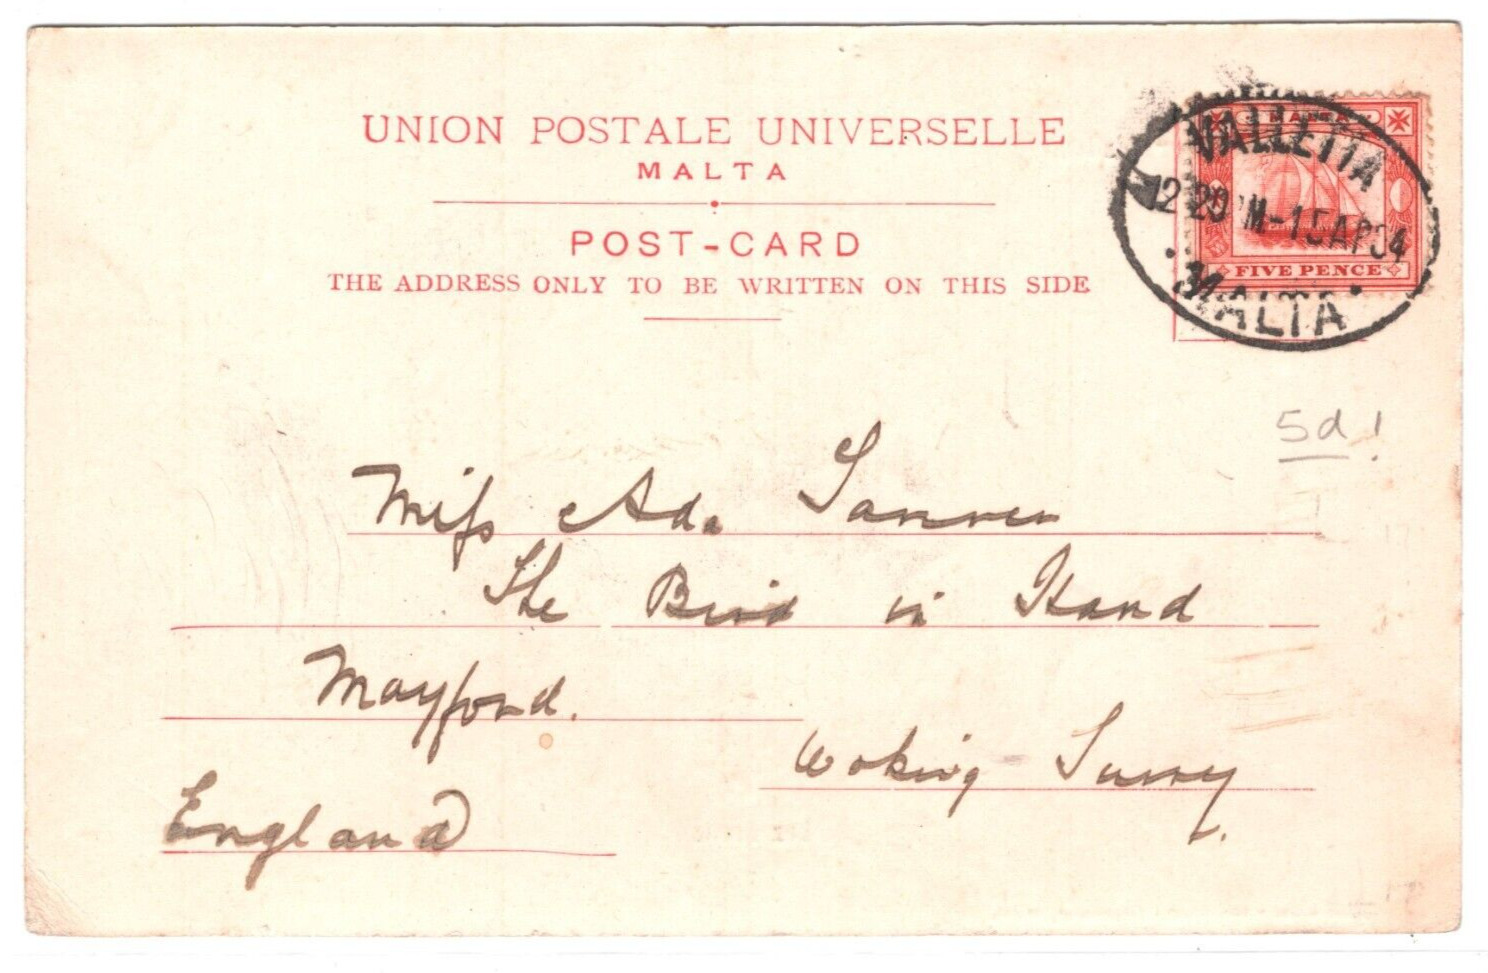 UNION POSTALE UNIVERSELLE
MALTA
POST-CARD
THE ADDRESS ONLY TO BE WRITTEN ON THIS SIDE
MALTA
FIVE PENCE
VALLETTA
12 20 PM-15AP04
MALTA
5d!
Miss Ada
The Bird in Hand
Mayford.
Woking Surry.
England